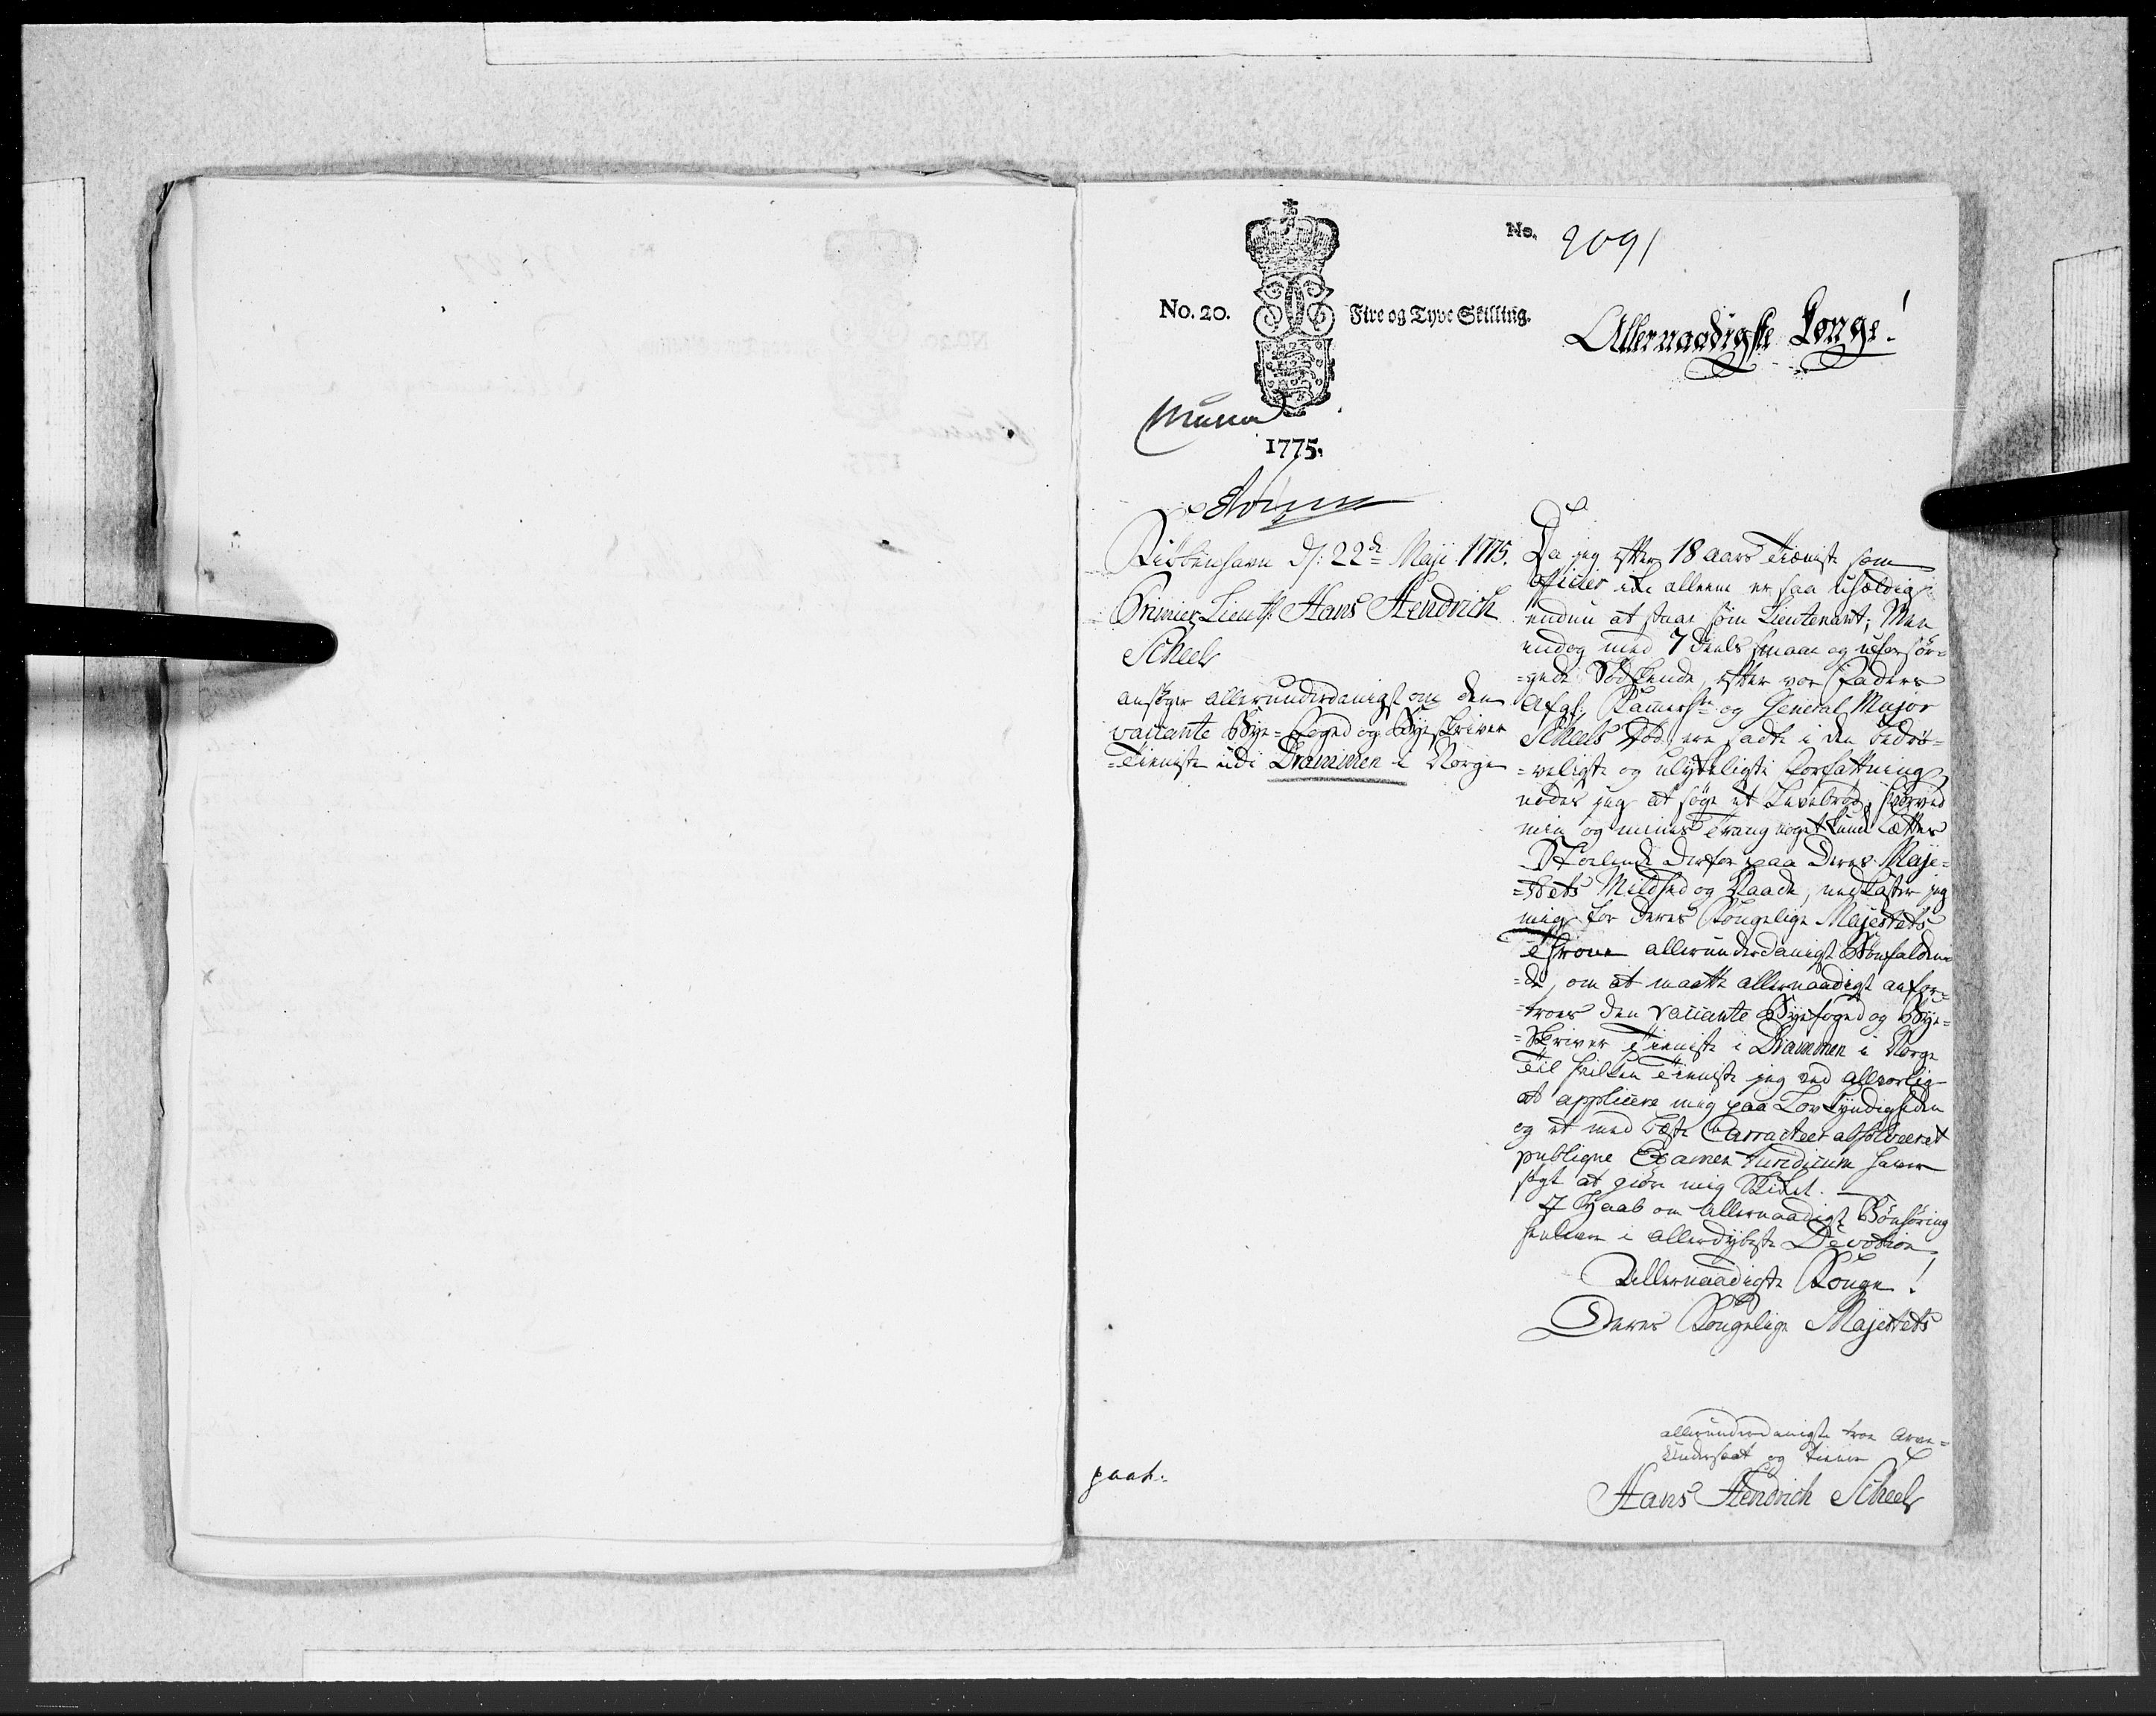 No. 2091
No. 20. Fire og Tyve Skilling.
Allernaadigste Konge!
1775.
Kiöbenhavn d: 22de Maji 1775.
Primier Lieutn: Hans Hendrich
Scheel
ansöger allerunderdanigst om den
vacante Bye-Foged og Byeskriver
Tieniste udi Drammen i Norge
Da jeg efter 18 aars Tieniste som
Officier ikke alleene er saa uhældig
endnu at staae som Lieutenant; Men
endog med 7 deels smaae og uforsör-
-gede Södskende, efter vor Faders
Afgl: Kammerhr. og General Major
Scheels Död, ere sadte i den bedrö-
-veligste og ulykkeligste Forfattning,
nödes jeg at söge et Levebröd, hvorved
min og mines Trang noget kunde lættes
Stoelende derfor paa Deres Maje-
-stets Mildhed og Naade, nedkaster jeg
mig for Deres Kongelige Majestets
Throne allerunderdanigst Bönfalden-
-de, om at maatte allernaadigst anfor-
-troes den vacante Byefoged og Bye-
-Skriver Tieniste i Drammen i Norge
Til hvilken Tieniste jeg ved allvorlig
at applicere mig paa Lov Kyndigheden
og et med beste Carracteer absolveeret
publique Examen Juridicum haver
sögt at giöre mig Skikket.
I Haab om allernaadigst Bönhöring
henlever i allerdybeste Devotion
Allernaadigste Konge!
Deres Kongelige Majestets
allerunderdanigste troe Arve-
Undersaat og tiener
Hans Hendrich Scheel